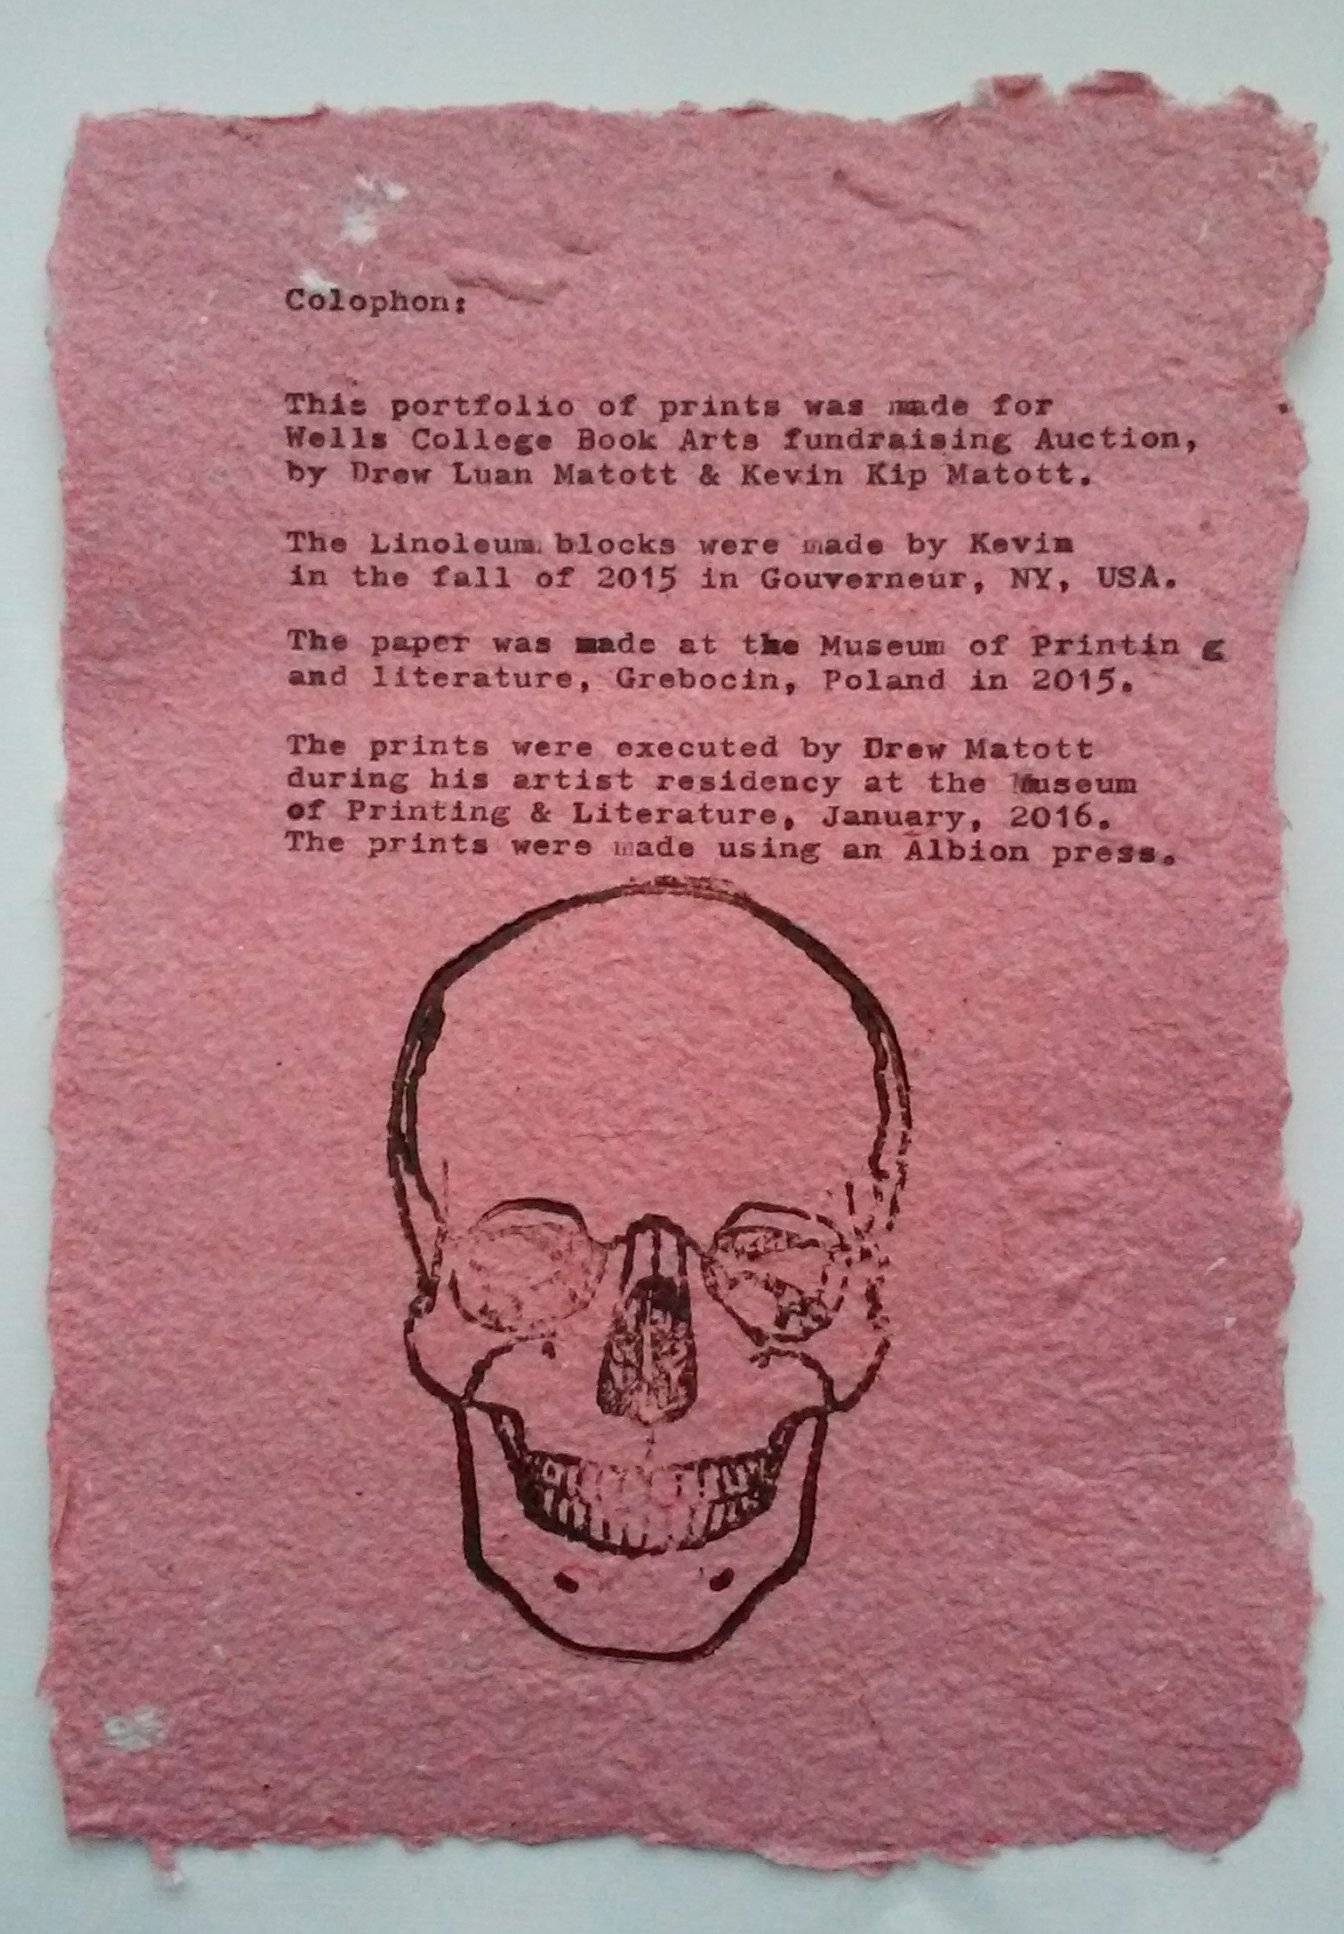 Colophon:
This portfolio of prints was made for
Wells College Book Arts fundraising Auction,
by Drew Luan Matott & Kevin Kip Matott.
The Linoleum blocks were made by Kevin
in the fall of 2015 in Gouverneur, NY, USA.
The paper was made at the Museum of Printin g
and literature, Grebocin, Poland in 2015.
The prints were executed by Drew Matott
during his artist residency at the Museum
of Printing & Literature, January, 2016.
The prints were made using an Albion press.